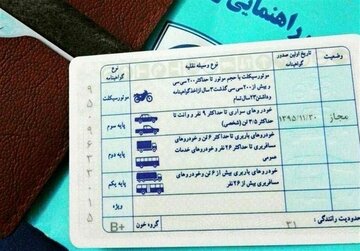 راهنمایی
وضعیت
تاریخ اولین صدور گواهینامه
نوع وسیله نقلیه
نوع گواهینامه
موتورسیکلت با حجم موتور تا حداکثر ۲۰۰ سی سی
و بیش از ۲۰۰ سی سی گذشت ۳ سال از اخذ گواهینامه
و داشتن ۲۳ سال تمام
موتورسیکلت
مجاز
۱۳۹۵/۱۱/۳۰
خودروهای سواری تا حداکثر ۹ نفر و وانت تا
حداکثر ۳/۵ تن (شخصی)
پایه سوم
خودروهای باربری تا حداکثر ۶ تن و خودروهای
مسافربری تا حداکثر ۲۶ نفر و خودروهای خدمات
عمومی
پایه دوم
خودروهای باربری بیش از ۶ تن و خودروهای
مسافربری بیش از ۲۶ نفر
پایه یکم
ویژه
محدودیت رانندگی :
۳۱
گروه خون
B+